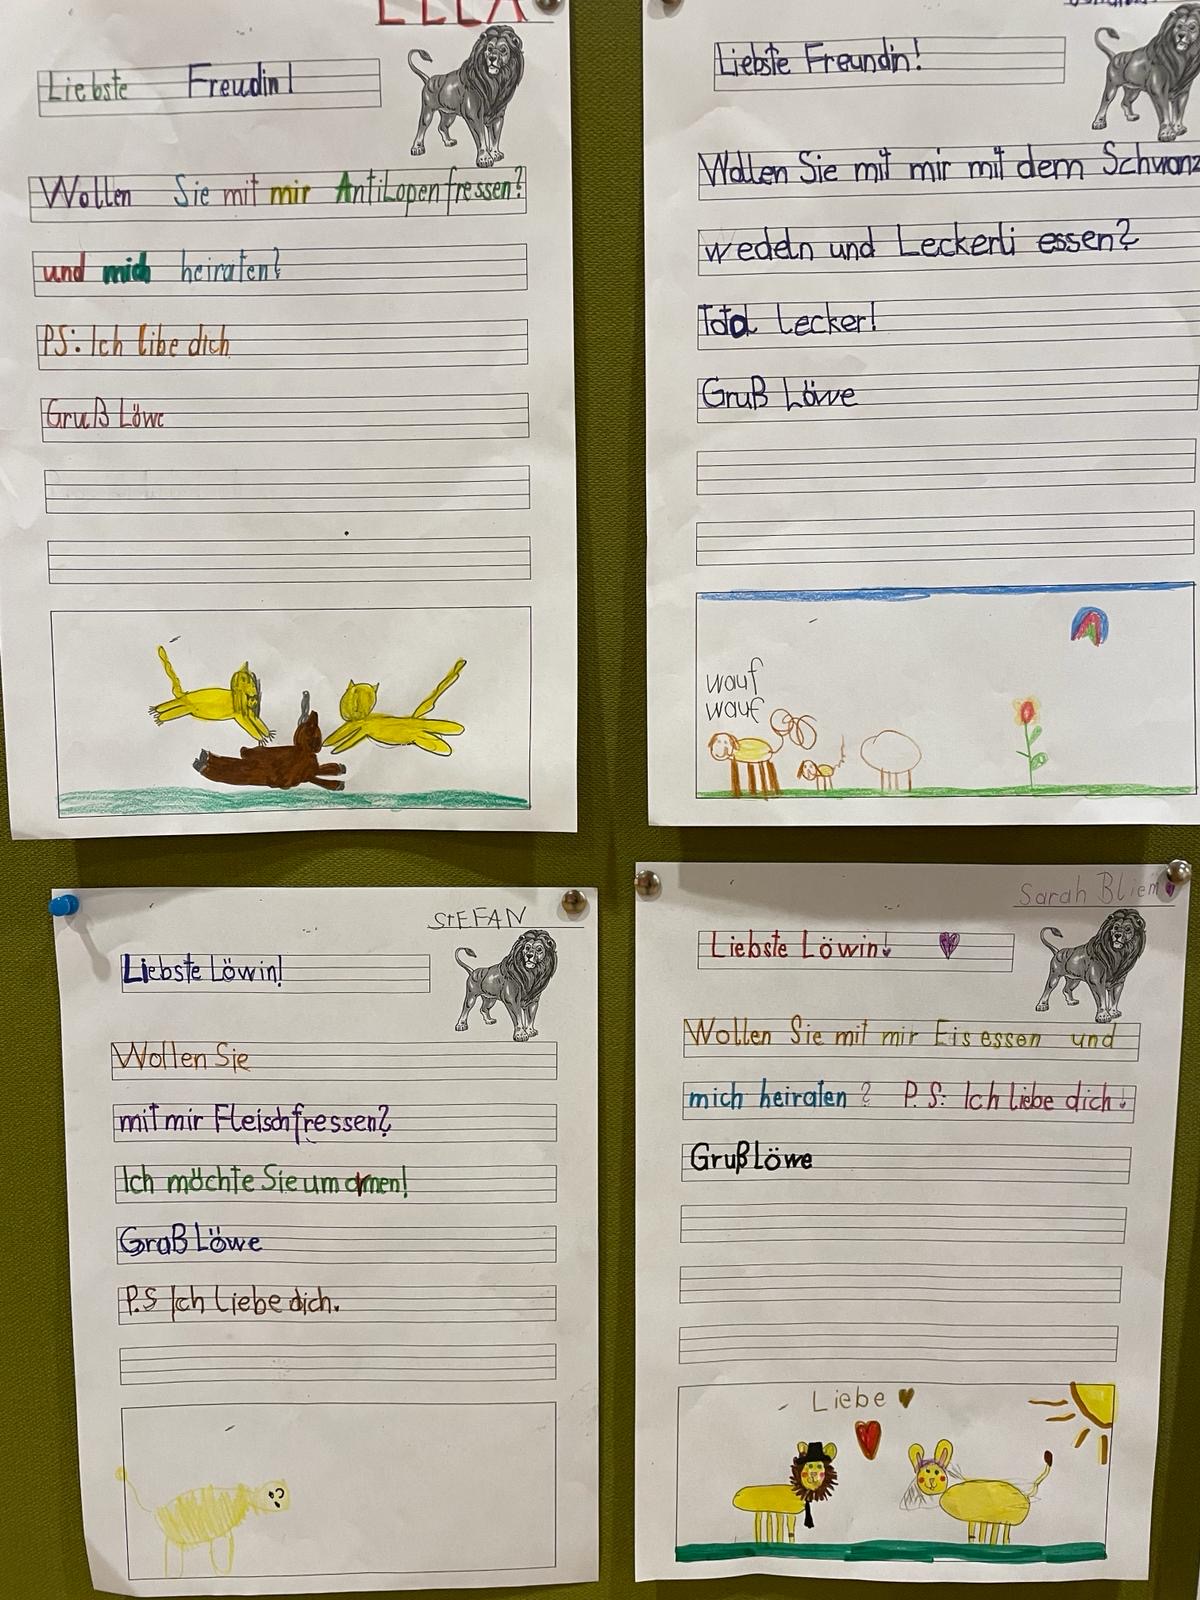 ELLA
Liebste Freudin!
Wollen Sie mit mir Antilopen fressen?
und mich heiraten?
PS: Ich libe dich
Gruß Löwe
Liebste Freundin!
Wollen Sie mit mir mit dem Schwanz
wedeln und Leckerli essen?
Total Lecker!
Gruß Löwe
wauf
wauf
STEFAN
Liebste Löwin!
Wollen Sie
mit mir Fleisch fressen?
Ich möchte Sie umarmen!
Graß Löwe
P.S Ich Liebe dich.
Sarah Bliem
Liebste Löwin!
Wollen Sie mit mir Eis essen und
mich heiraten? P.S: Ich liebe dich!
Gruß Löwe
Liebe